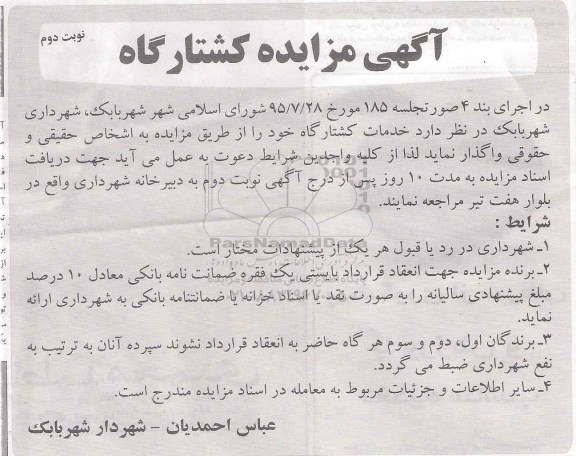 آگهی مزایده کشتارگاه
نوبت دوم
در اجرای بند ۴ صورتجلسه ۱۸۵ مورخ ۹۵/۷/۲۸ شورای اسلامی شهر شهربابک، شهرداری
شهربابک در نظر دارد خدمات کشتارگاه خود را از طریق مزایده به اشخاص حقیقی و
حقوقی واگذار نماید لذا از کلیه واجدین شرایط دعوت به عمل می آید جهت دریافت
اسناد مزایده به مدت ۱۰ روز پس از درج آگهی نوبت دوم به دبیرخانه شهرداری واقع در
بلوار هفت تیر مراجعه نمایند.
شرایط :
۱ـ شهرداری در رد یا قبول هر یک از پیشنهادات مختار است.
۲ـ برنده مزایده جهت انعقاد قرارداد بایستی یک فقره ضمانت نامه بانکی معادل ۱۰ درصد
مبلغ پیشنهادی سالیانه را به صورت نقد یا اسناد خزانه یا ضمانتنامه بانکی به شهرداری ارائه
نماید.
۳ـ برندگان اول، دوم و سوم هر گاه حاضر به انعقاد قرارداد نشوند سپرده آنان به ترتیب به
نفع شهرداری ضبط می گردد.
۴ـ سایر اطلاعات و جزئیات مربوط به معامله در اسناد مزایده مندرج است.
عباس احمدیان - شهردار شهربابک
ParsNamadData